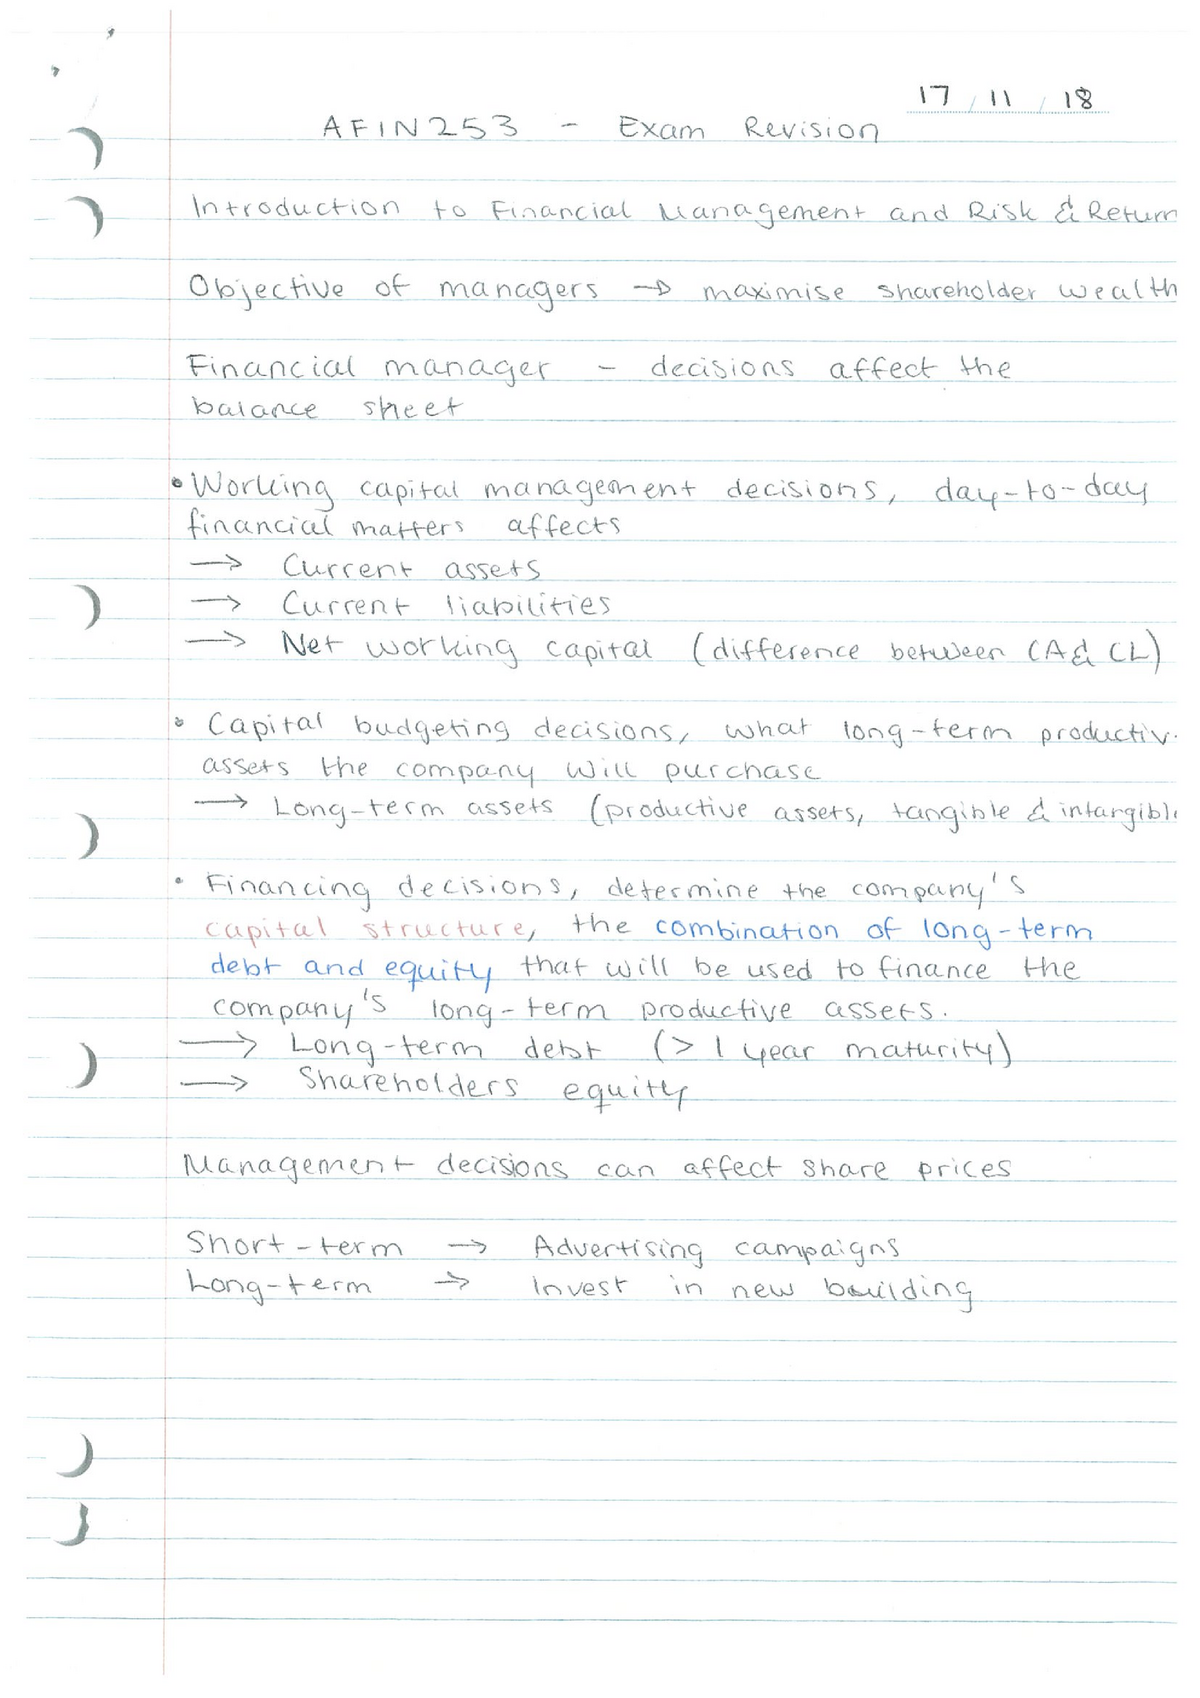 17 / 11 / 18
AFIN253 - Exam Revision
Introduction to Financial Management and Risk & Return
Objective of managers → maximise shareholder wealth
Financial manager - decisions affect the
balance sheet
• Working capital management decisions, day-to-day
financial matters affects
→ Current assets
→ Current liabilities
→ Net working capital (difference between CA & CL)
• Capital budgeting decisions, what long-term productiv
assets the company will purchase
→ Long-term assets (productive assets, tangible & intangibl
• Financing decisions, determine the company's
capital structure, the combination of long-term
debt and equity that will be used to finance the
company's long-term productive assets.
→ Long-term debt (> 1 year maturity)
→ Shareholders equity
Management decisions can affect share prices
Short-term → Advertising campaigns
Long-term → Invest in new building